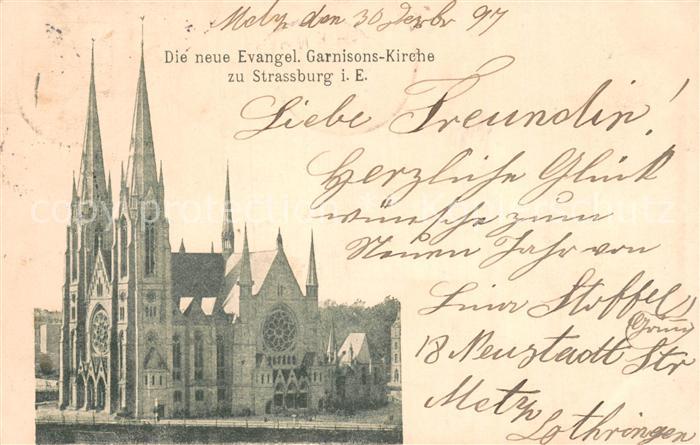 Metz den 30 Dezbr 97
Die neue Evangel. Garnisons-Kirche
zu Strassburg i. E.
Liebe Freundin!
Herzliche Glück
wünsche zum
Neuen Jahr von
Lina Stoffel
18 Neustadt Str
Metz
Lothringen
copyright protection